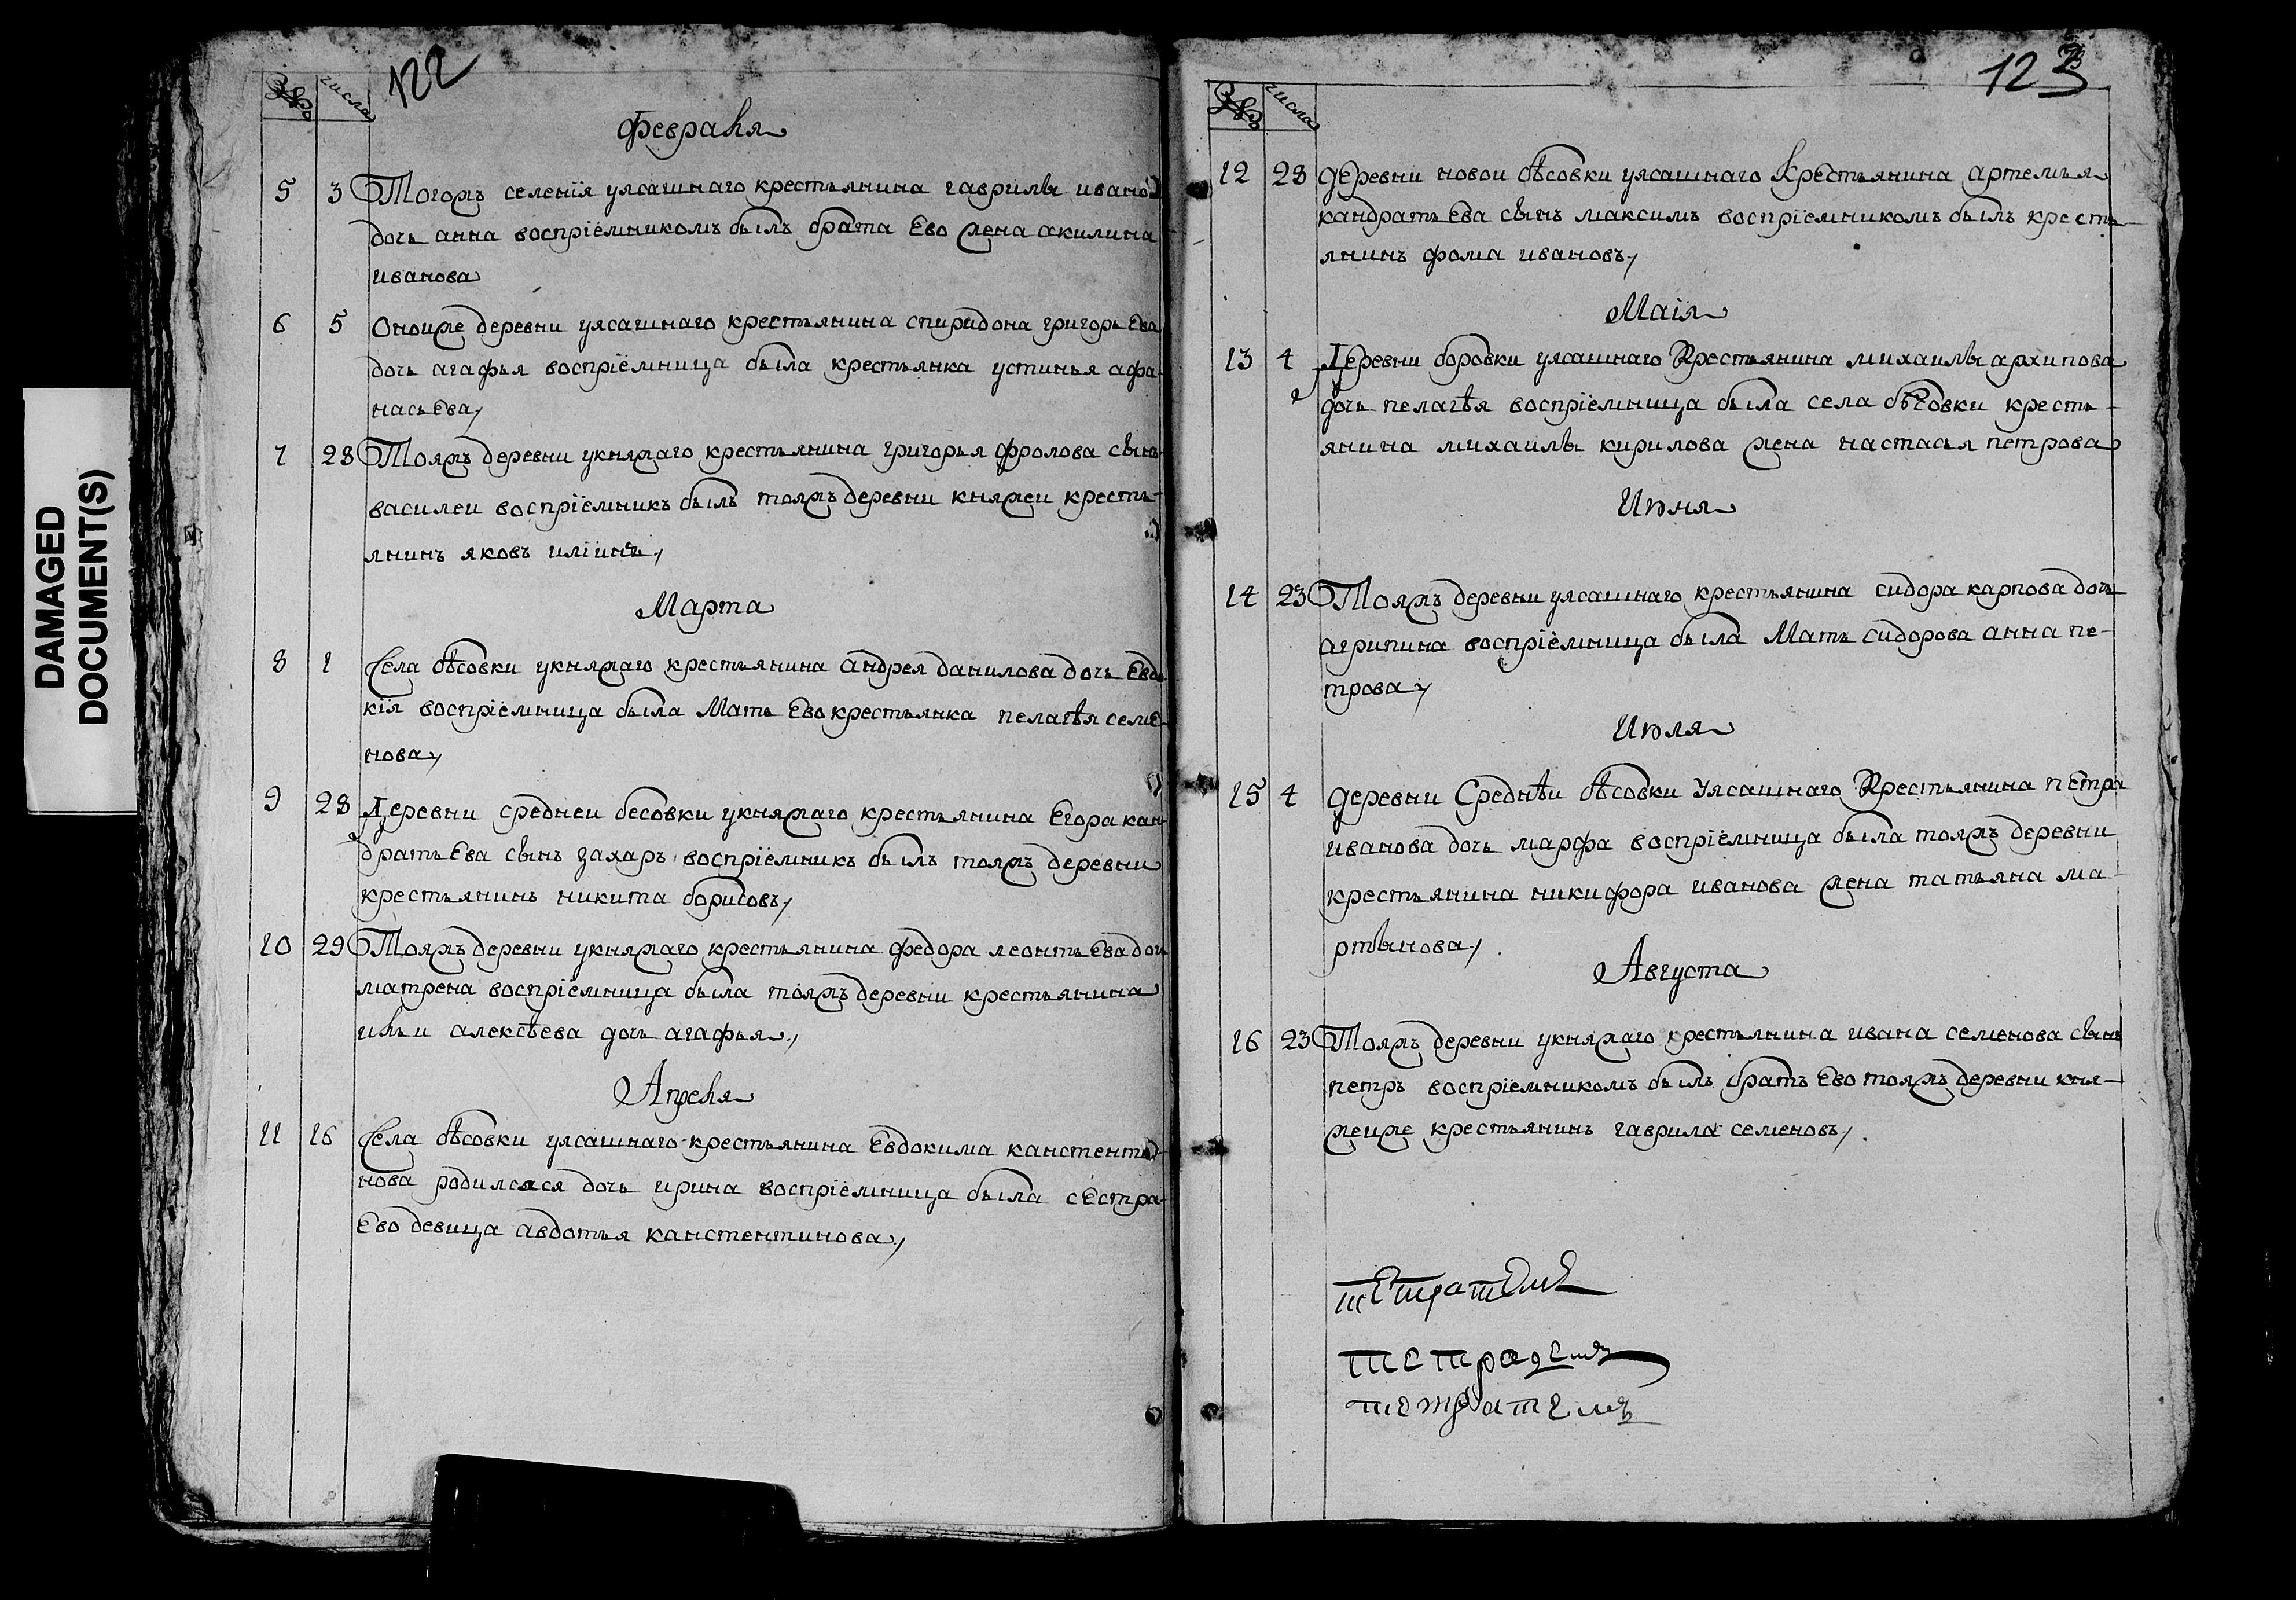 DAMAGED
DOCUMENT(S)
числа
122
Февраля
5 3 Тогожъ селенїя уясашнаго крестьянина гаврилы ивано
дочь анна воспрїемникомъ былъ брата Ево жена акилина
иванова
6 5 Оноиже деревни уясашнаго крестьянина спиридона григорьЕва
дочь агафья воспрїемница была крестьянка устинья афа-
насьЕва,
7 28 Тояжъ деревни укняжаго крестьянина григорья фролова сынъ
василеи воспрїемникъ былъ тояжъ деревни княжеи кресть-
янинъ яковъ илїинъ,
Марта
8 1 Села бѣсовки укняжаго крестьянина андрея данилова дочь Евдо
кїя воспрїемница была Мать Ево крестьянка пелагѣя семе-
нова,
9 28 Деревни среднеи бесовки укняжаго крестьянина Егора кан-
дратьЕва сынъ захаръ воспрїемникъ былъ тояжъ деревни
крестьянинъ никита борисовъ,
10 29 Тояжъ деревни укняжаго крестьянина федора леонтьЕва дочь
матрена воспрїемница была тояжъ деревни крестьянина
ильи алексѣева дочь агафья,
Апреля
11 16 Села бѣсовки уясашнаго крестьянина Евдокима канстенти-
нова родилсяся дочь ирина воспрїемница была сЕстра
Ево девица авдотья канстентинова,
числа
123
12 28 деревни новои бѣсовки уясашнаго Крестьянина артемья
кандратьЕва сынъ максимъ воспрїемникомъ былъ кресть-
янинъ фома ивановъ,
Маїя
13 4 Деревни боровки уясашнаго Крестьянина михаилы архипова
дочь пелагѣя воспрїемница была села бѣсовки кресть-
янина михаилы кирилова жена настасья петрова
Июня
14 23 Тояжъ деревни уясашнаго крестьянина сидора карпова дочь
агрипина воспрїемница была Мать сидорова анна пе-
трова,
Июля
15 4 деревни Среднѣи бѣсовки Уясашнаго Крестьянина пЕтра
иванова дочь марфа воспрїемница была тояжъ деревни
крестьянина никифора иванова жена татьяна ма-
ртынова,
Августа
16 23 Тояжъ деревни укняжаго крестьянина ивана семенова сынъ
петръ воспрїемникомъ былъ братъ Ево тояжъ деревни кня-
жеиже крестьянинъ гаврила семеновъ,